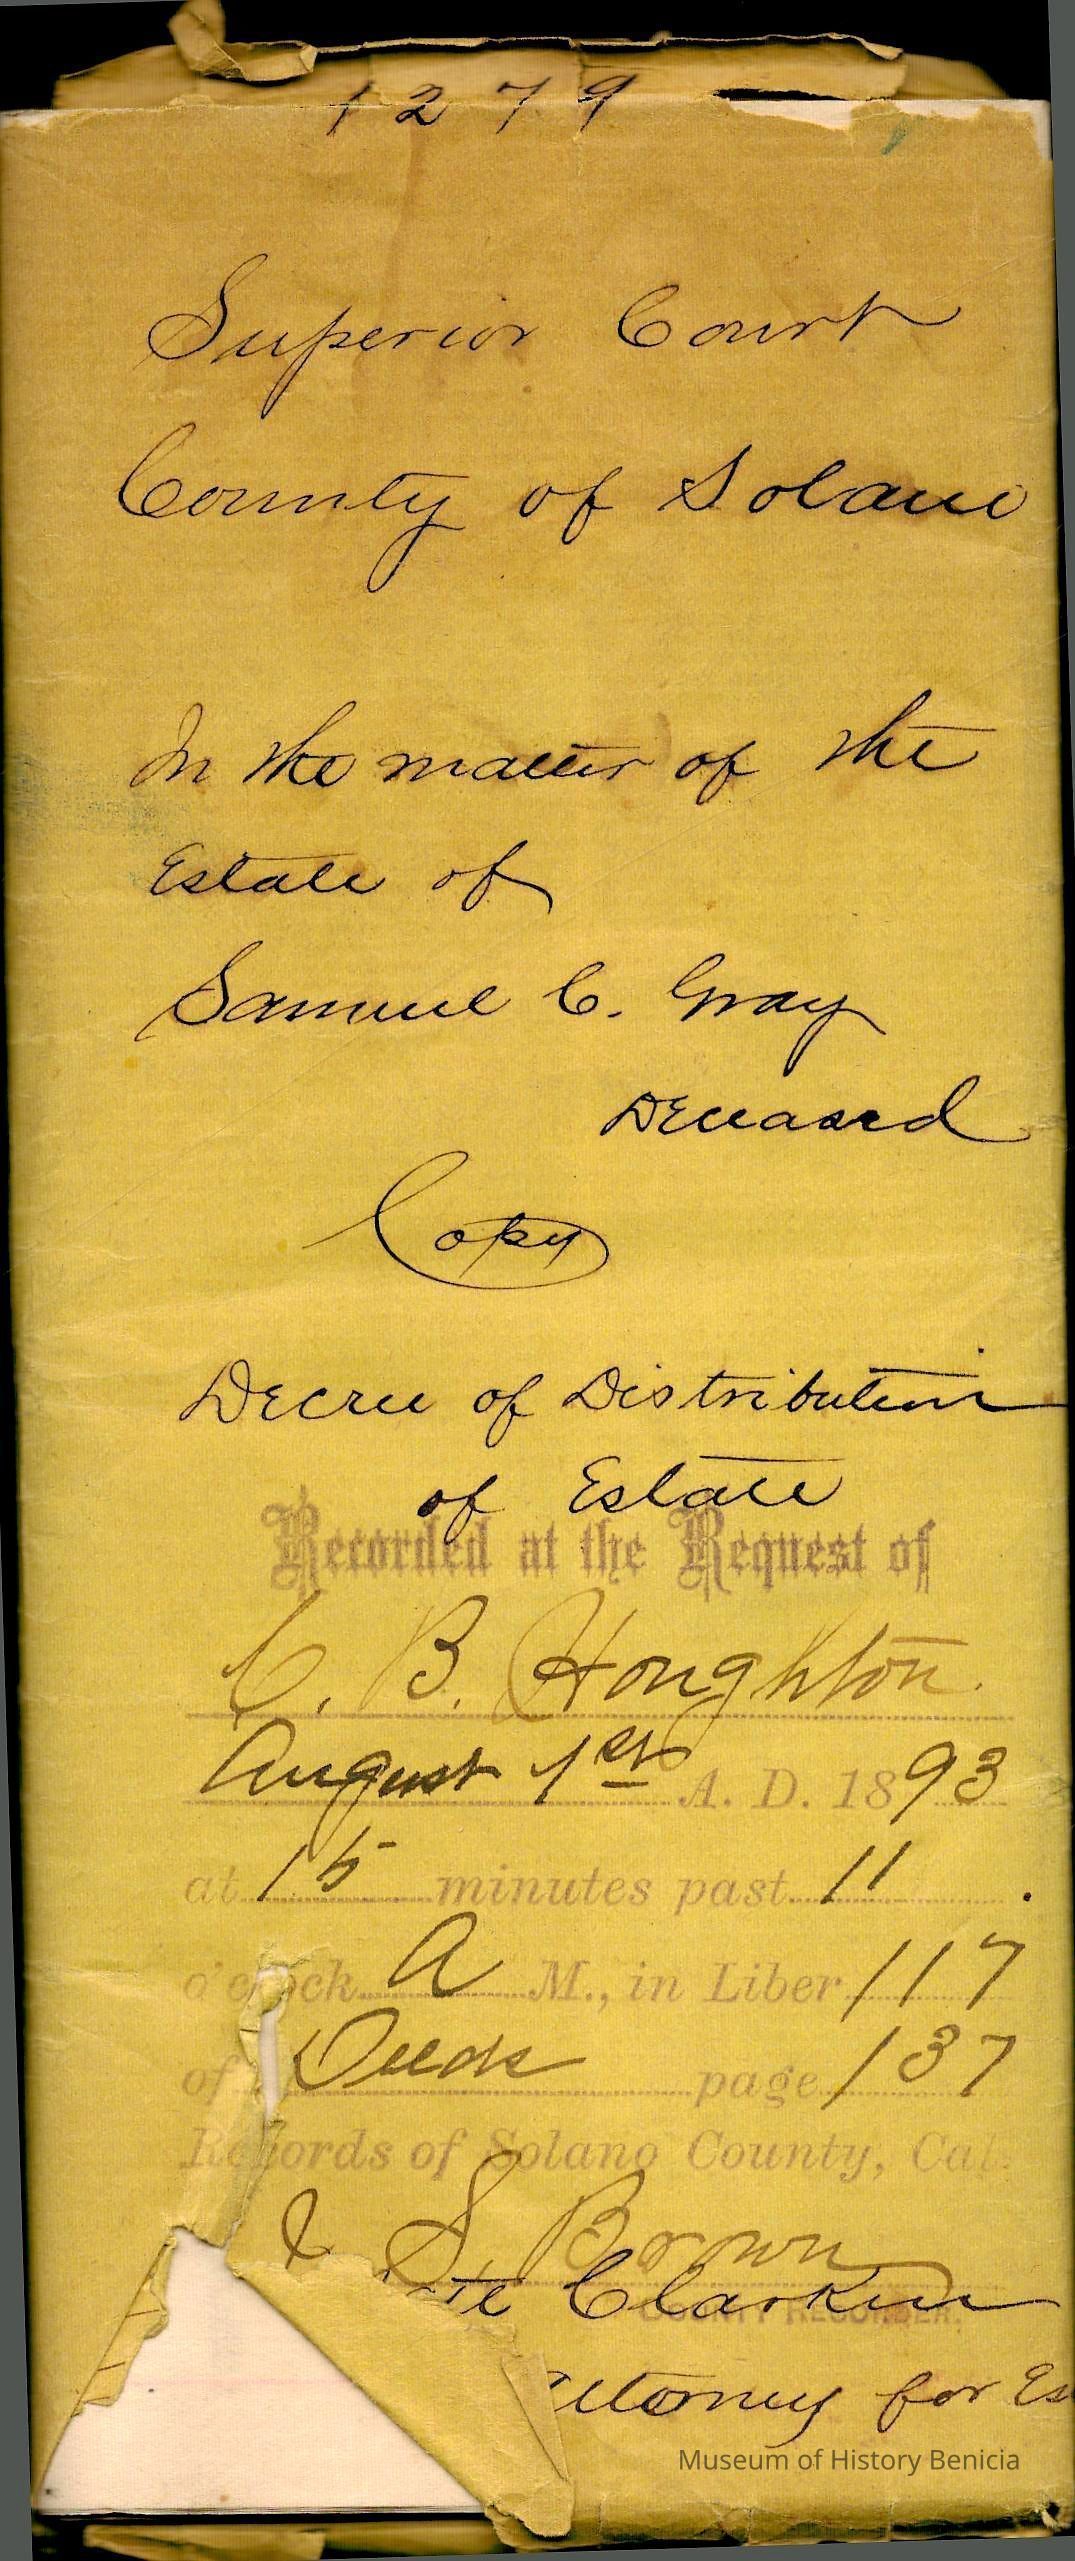 1279
Superior Court
County of Solano
In the matter of the
Estate of
Samuel C. Gray
Deceased
Copy
Decree of Distribution
of Estate
Recorded at the Request of
C. B. Houghton
August 1st A. D. 1893
at 15 minutes past 11 .
o'clock A M., in Liber 117
of Deeds page 137
Records of Solano County, Cal.
S. Brown
COUNTY RECORDER.
Attorney for Es
Museum of History Benicia